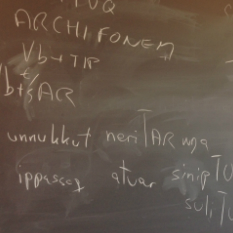 ARCHIFONEM
Vb+TIP
unnukkut neriTARnga
ippassaq atuar sinipTU
suliTU